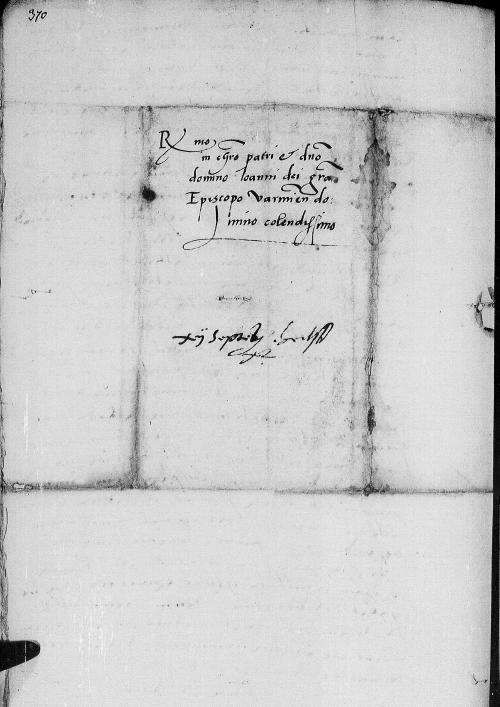 370
R mo
in chro patri et dno
domino Ioanni dei gra
Episcopo Varmien do:
mino colendissimo
xij Septeb